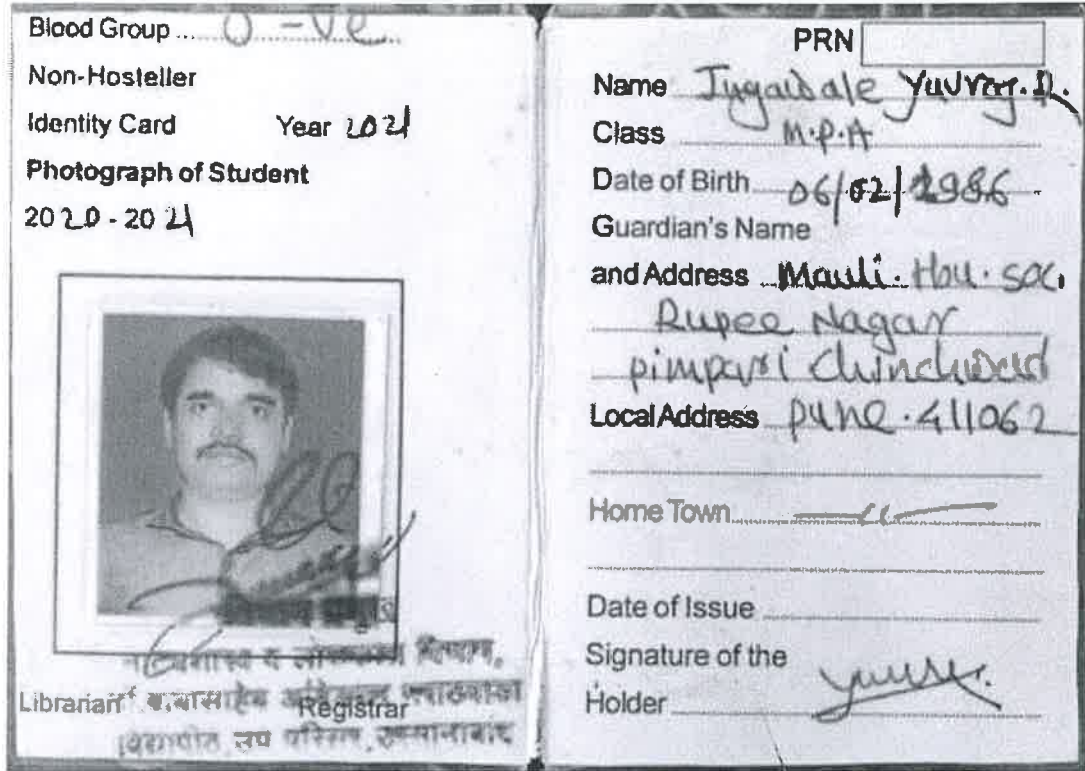 Blood Group O -ve
Non-Hosteller
Identity Card Year 2021
Photograph of Student
2020 - 2021
नाट्यशास्त्र व लोककला विभाग,
Librarian Registrar
उप परिसर, उस्मानाबाद
PRN
Name Jugaldale Yuvraj. D.
Class M.P.A
Date of Birth 06/02/1986
Guardian's Name
and Address Mauli. Hou. soc.
Rupee Nagar
pimpari Chinchwad
Local Address pune. 411062
Home Town —"—
Date of Issue
Signature of the
Holder